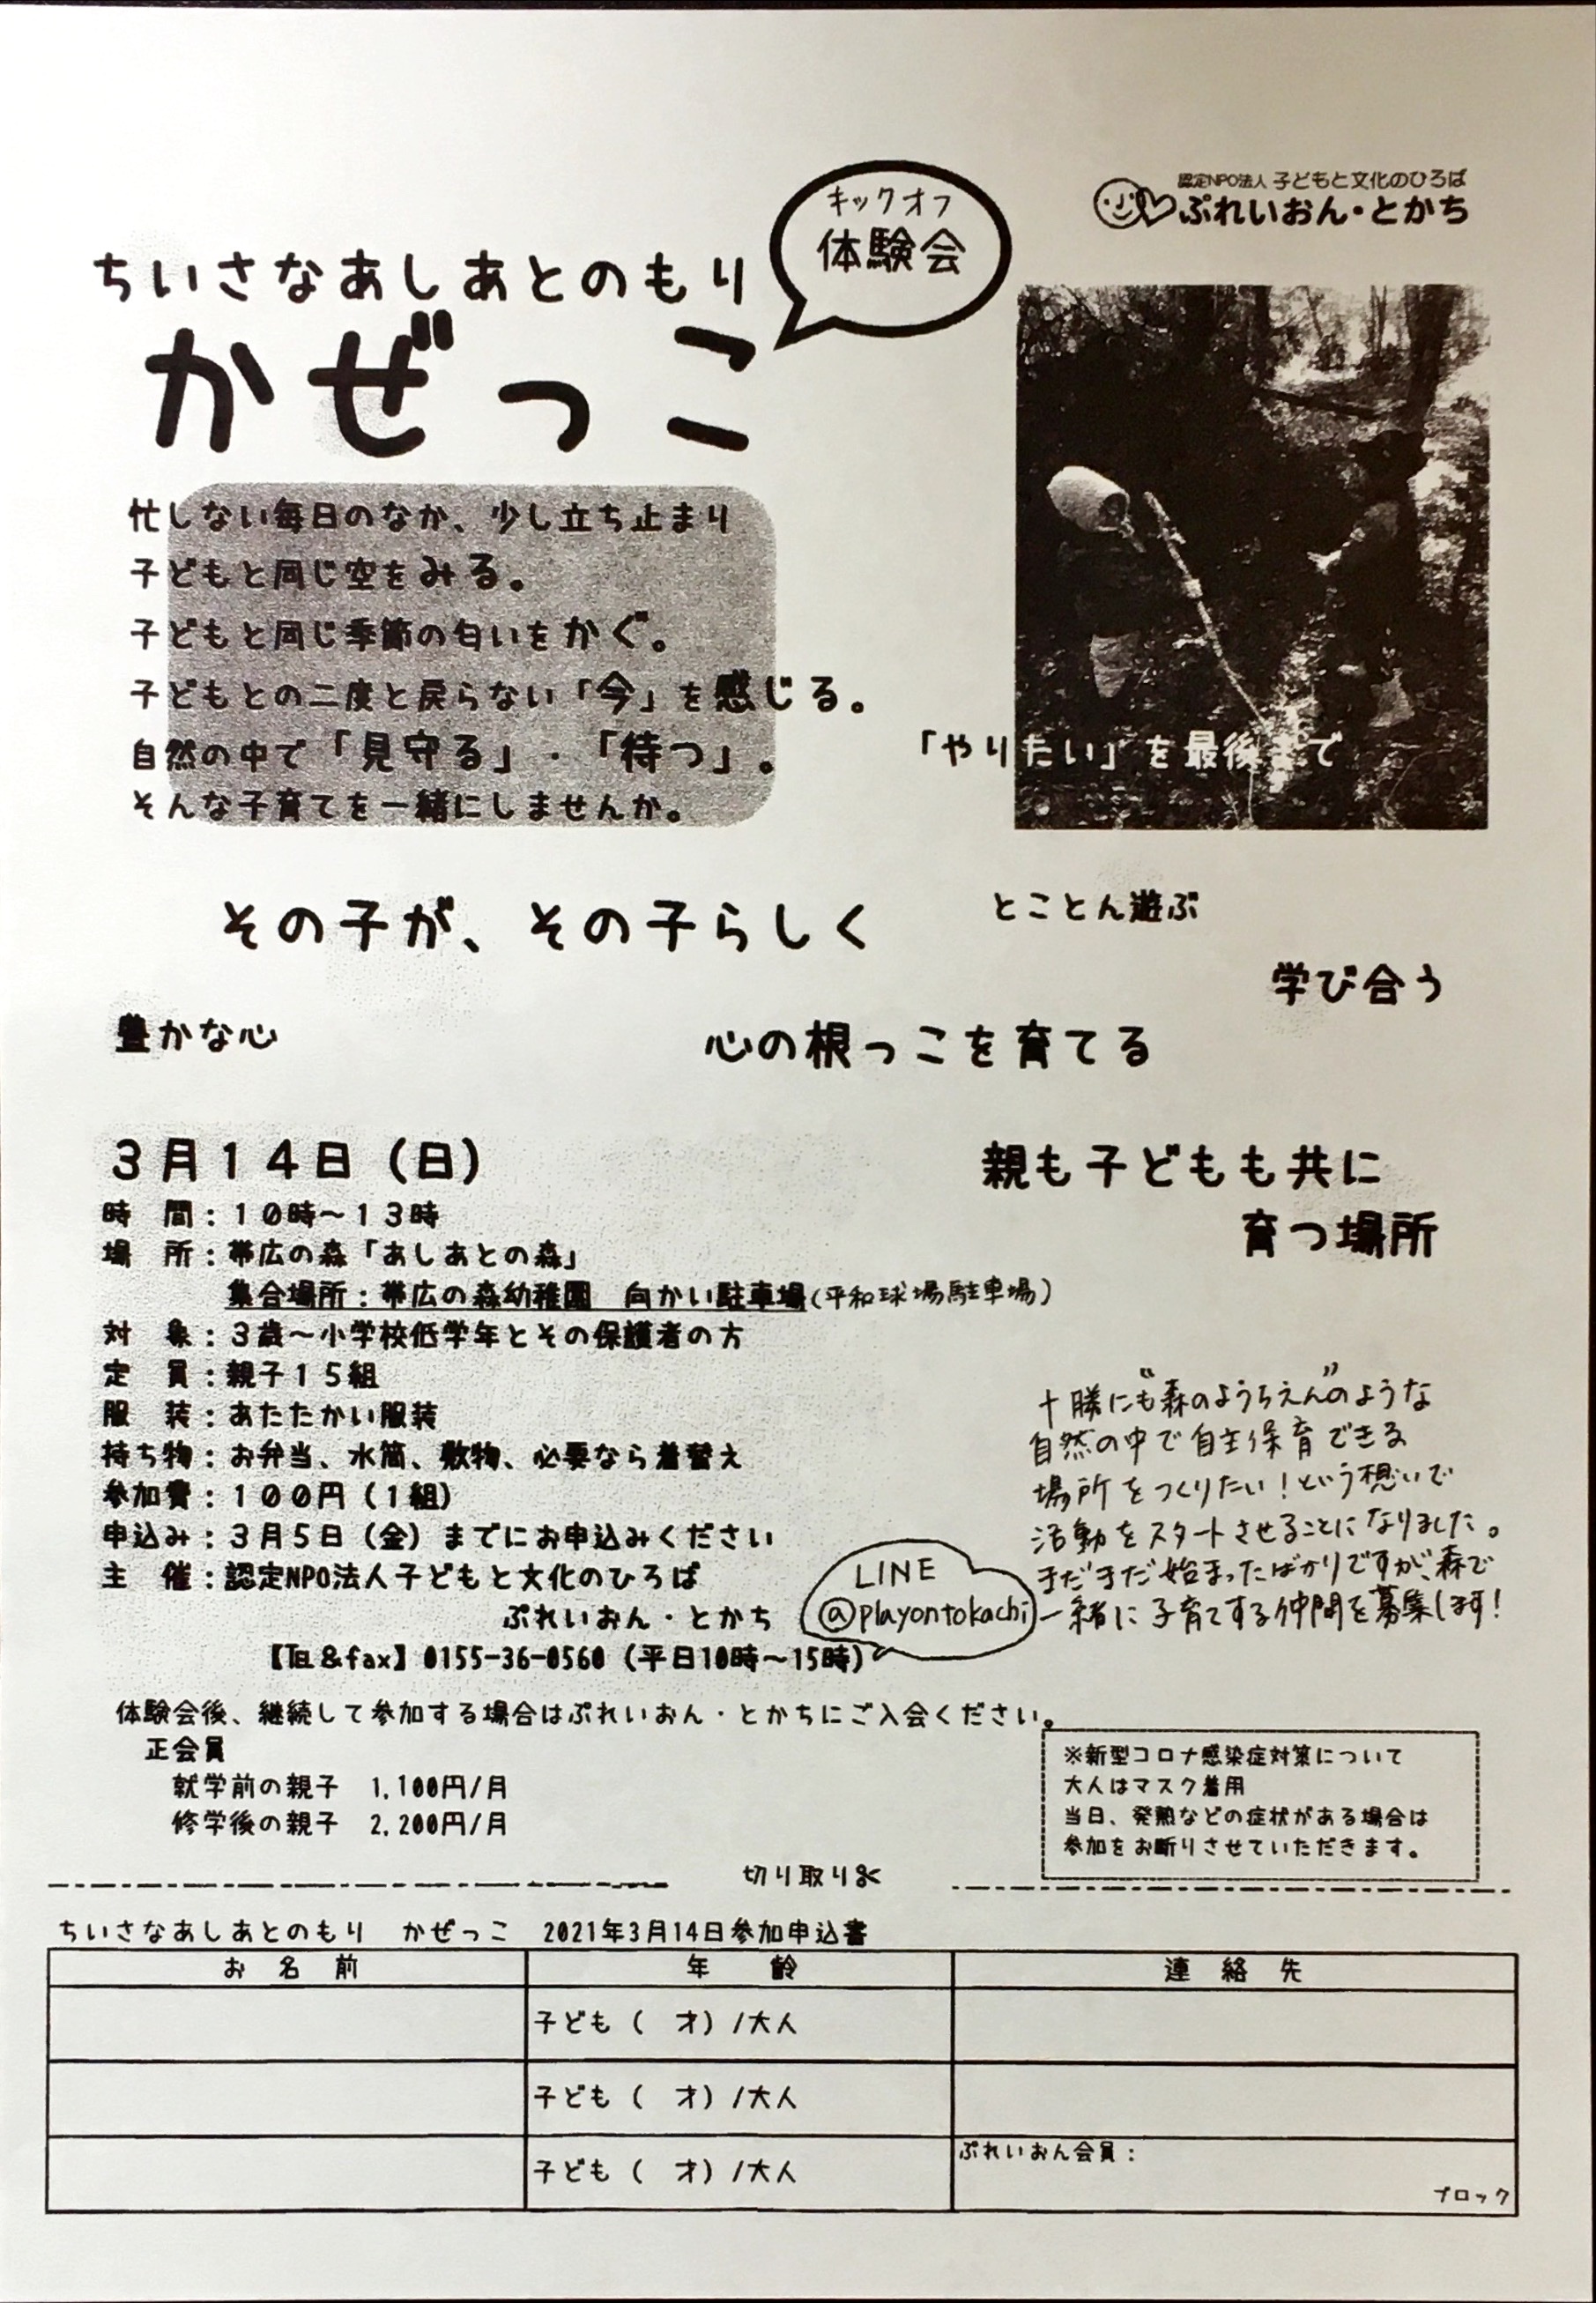 認定NPO法人 子どもと文化のひろば
ぷれいおん・とかち
キックオフ
体験会
ちいさなあしあとのもり
かぜっこ
忙しない毎日のなか、少し立ち止まり
子どもと同じ空をみる。
子どもと同じ季節の匂いをかぐ。
子どもとの二度と戻らない「今」を感じる。
自然の中で「見守る」・「待つ」。
そんな子育てを一緒にしませんか。
「やりたい」を最後まで
その子が、その子らしく
とことん遊ぶ
学び合う
豊かな心
心の根っこを育てる
親も子どもも共に
育つ場所
３月１４日（日）
時　間：１０時～１３時
場　所：帯広の森「あしあとの森」
集合場所：帯広の森幼稚園　向かい駐車場(平和球場駐車場)
対　象：３歳～小学校低学年とその保護者の方
定　員：親子１５組
服　装：あたたかい服装
持ち物：お弁当、水筒、敷物、必要なら着替え
参加費：１００円（１組）
申込み：３月５日（金）までにお申込みください
主　催：認定NPO法人子どもと文化のひろば
ぷれいおん・とかち
【℡&fax】0155-36-0560（平日10時～15時）
LINE
@playontokachi
十勝にも“森のようちえん”のような
自然の中で自主保育できる
場所をつくりたい！という想いで
活動をスタートさせることになりました。
まだまだ始まったばかりですが、森で
一緒に子育てする仲間を募集します！
体験会後、継続して参加する場合はぷれいおん・とかちにご入会ください。
正会員
就学前の親子　1,100円/月
修学後の親子　2,200円/月
※新型コロナ感染症対策について
大人はマスク着用
当日、発熱などの症状がある場合は
参加をお断りさせていただきます。
切り取り✂
ちいさなあしあとのもり　かぜっこ　2021年3月14日参加申込書
お　名　前　年　齢　連　絡　先
子ども（　才）/大人
子ども（　才）/大人
子ども（　才）/大人
ぷれいおん会員：
ブロック